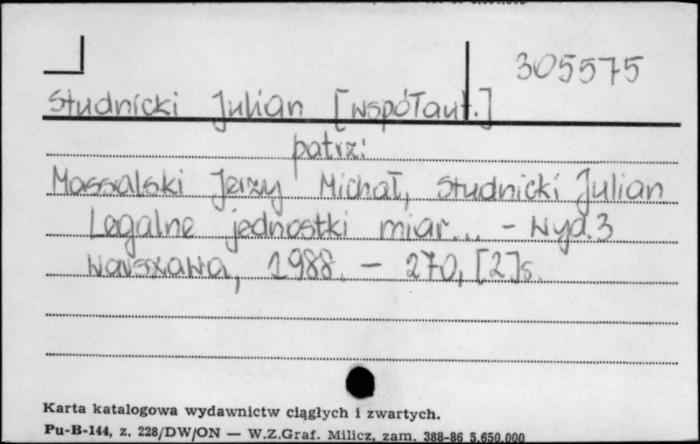 305575
Studnicki Julian [współaut.]
patrz:
Massalski Jerzy Michał, Studnicki Julian
Legalne jednostki miar... - Wyd.3
Warszawa, 1988. - 270, [2]s.
Karta katalogowa wydawnictw ciągłych i zwartych.
Pu-B-144, z. 228/DW/ON — W.Z.Graf. Milicz, zam. 388-86 5.650.000